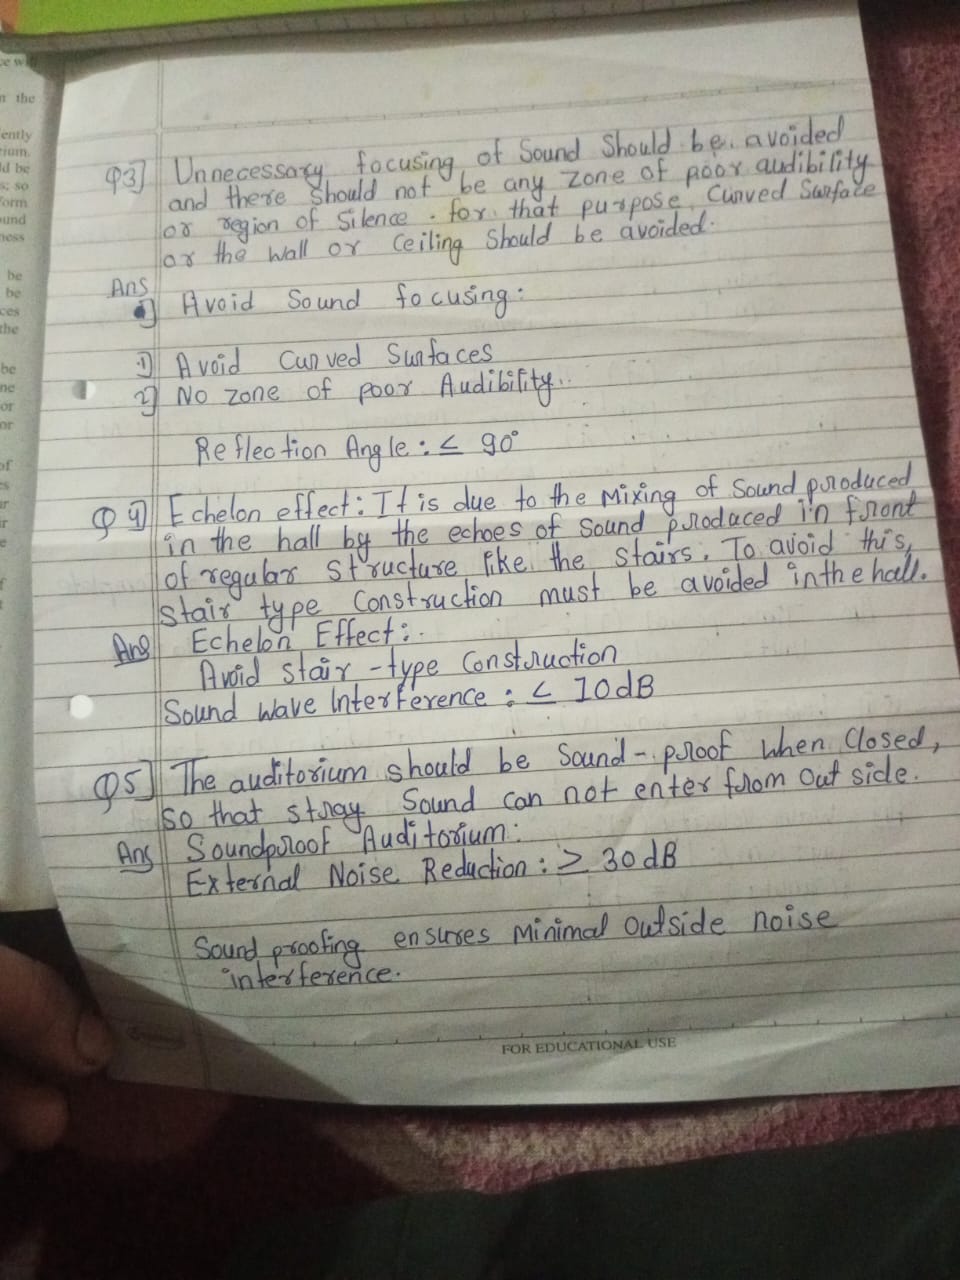 e wi
n the
ently
rium.
ld be
s; so
form
und
ness
be
be
ces
the
be
ne
or
or
of
es
ur
ir
e
Q3] Unnecessary focusing of Sound Should be avoided
and there Should not be any zone of poor audibility
or region of Silence. for that purpose, Curved Surface
or the wall or Ceiling Should be avoided.
Ans
1] Avoid Sound focusing:
1) Avoid Curved Surfaces
2) No zone of poor Audibility..
Reflection Angle: ≤ 90°
Q 4] Echelon effect: It is due to the Mixing of Sound produced
in the hall by the echoes of Sound produced in front
of regular structure like the stairs. To avoid this,
Stair type Construction must be avoided in the hall.
Ans Echelon Effect:.
Avoid stair-type Construction
Sound wave Interference: ≤ 10dB
Q5] The auditorium should be Sound-proof when Closed,
so that stray Sound can not enter from out side.
Ans Soundproof Auditorium:
External Noise Reduction: ≥ 30dB
Sound proofing ensures Minimal outside noise
interference.
FOR EDUCATIONAL USE